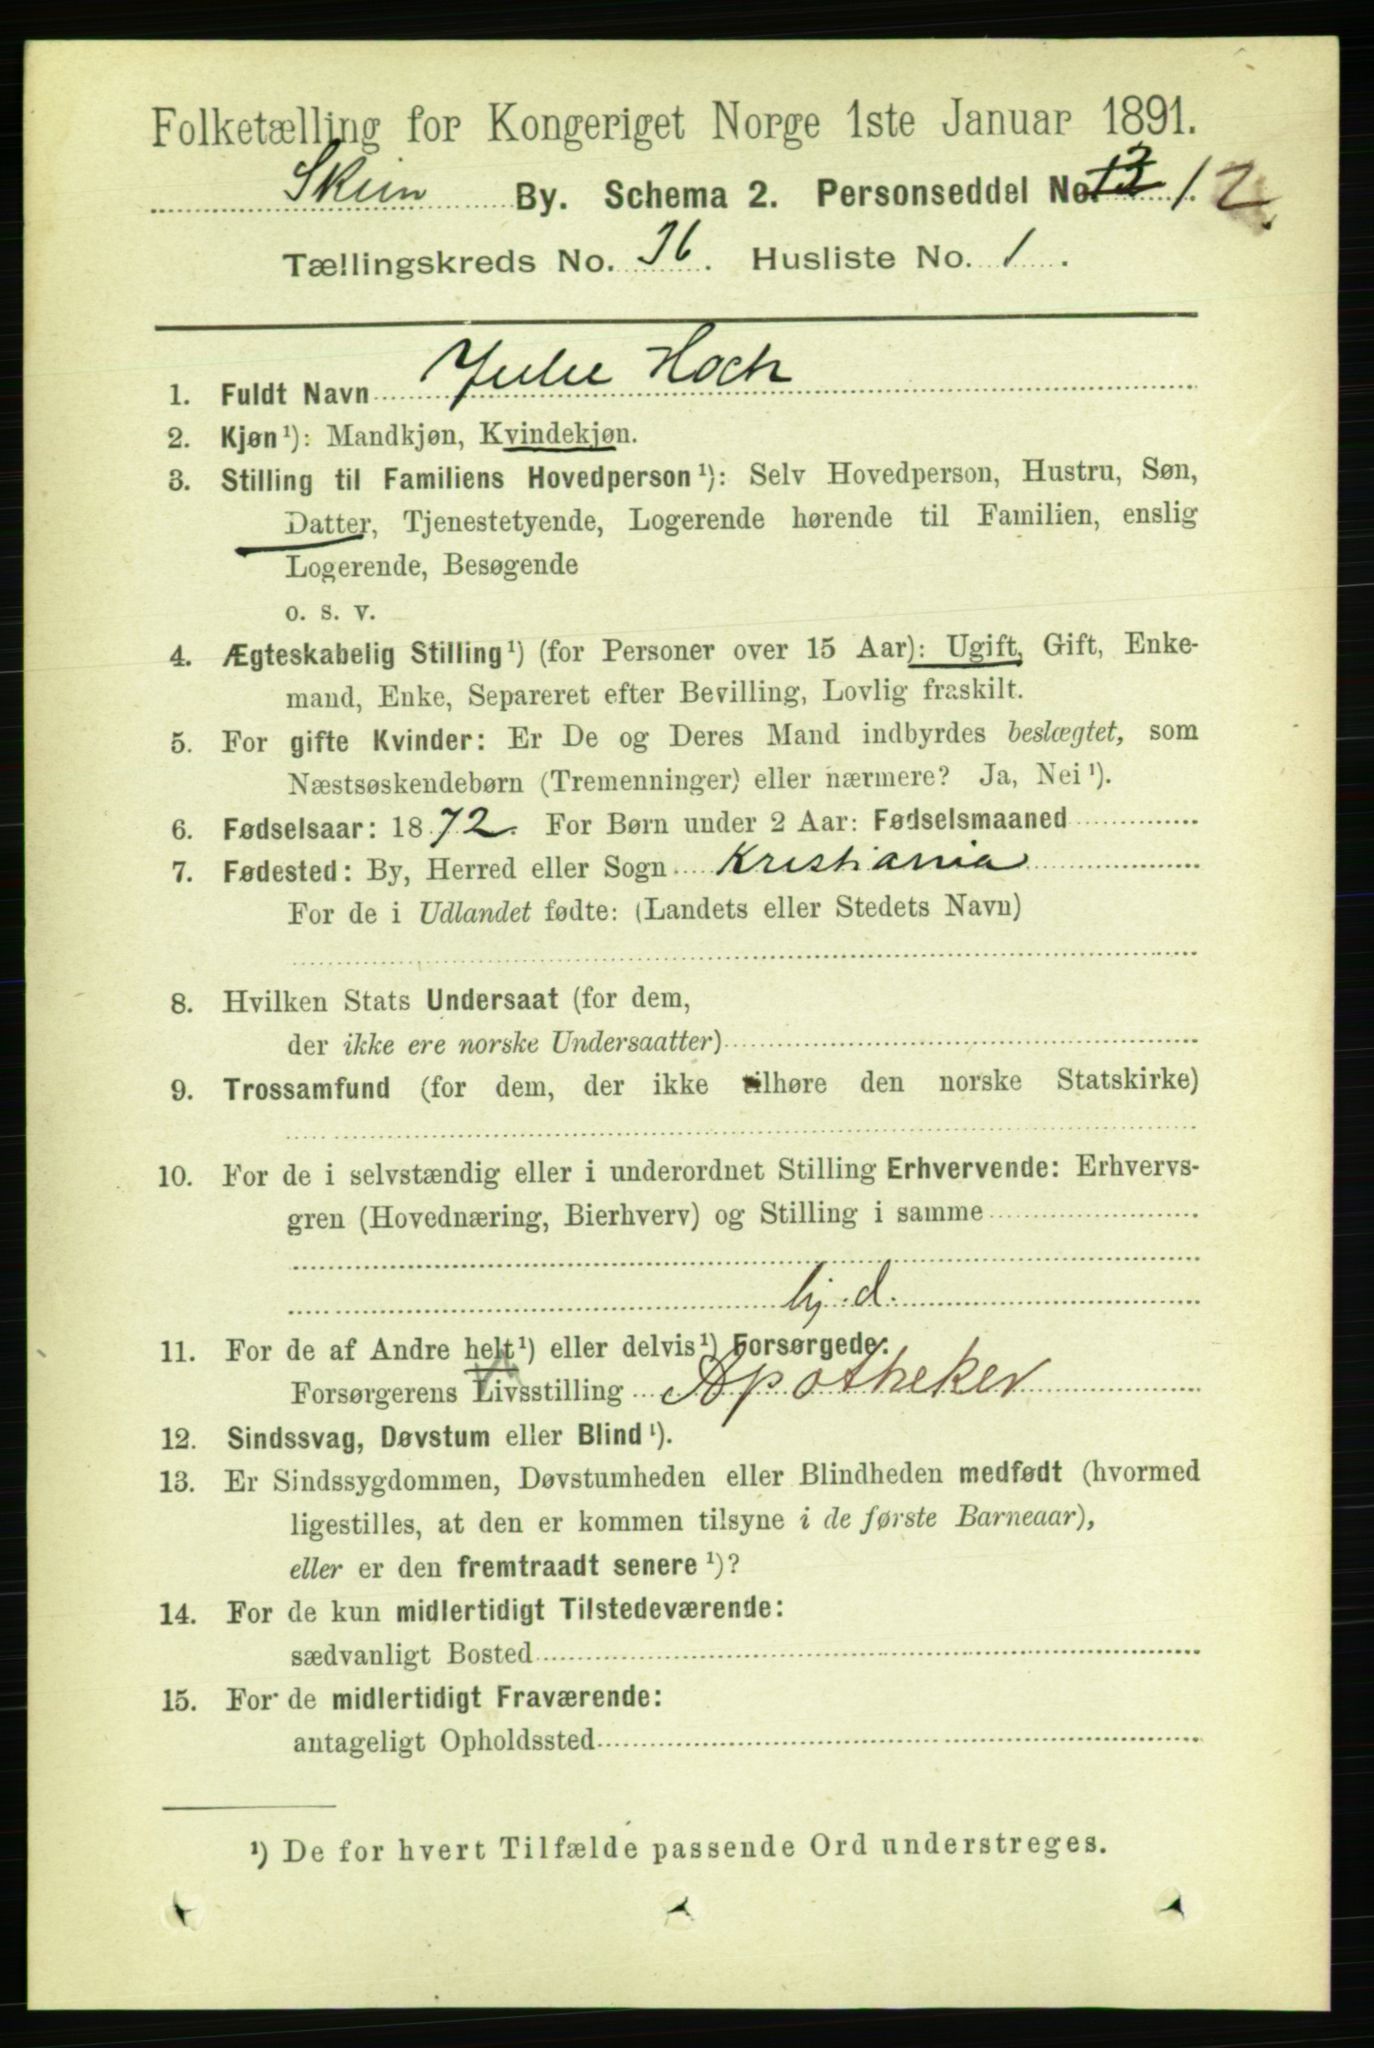 Folketælling for Kongeriget Norge 1ste Januar 1891.
Skien By. Schema 2. Personseddel No. 13 12
Tællingskreds No. 36. Husliste No. 1.
1. Fuldt Navn Julie Hoch
2. Kjøn¹): Mandkjøn, Kvindekjøn.
3. Stilling til Familiens Hovedperson¹): Selv Hovedperson, Hustru, Søn,
Datter, Tjenestetyende, Logerende hørende til Familien, enslig
Logerende, Besøgende
o. s. v.
4. Ægteskabelig Stilling¹) (for Personer over 15 Aar): Ugift, Gift, Enke-
mand, Enke, Separeret efter Bevilling, Lovlig fraskilt.
5. For gifte Kvinder: Er De og Deres Mand indbyrdes beslægtet, som
Næstsøskendebørn (Tremenninger) eller nærmere? Ja, Nei¹).
6. Fødselsaar: 1872. For Børn under 2 Aar: Fødselsmaaned
7. Fødested: By, Herred eller Sogn Kristiania
For de i Udlandet fødte: (Landets eller Stedets Navn)
8. Hvilken Stats Undersaat (for dem,
der ikke ere norske Undersaatter)
9. Trossamfund (for dem, der ikke tilhøre den norske Statskirke)
10. For de i selvstændig eller i underordnet Stilling Erhvervende: Erhvervs-
gren (Hovednæring, Bierhverv) og Stilling i samme
hj. d.
11. For de af Andre helt¹) eller delvis¹) Forsørgede:
Forsørgerens Livsstilling Apotheker
12. Sindssvag, Døvstum eller Blind¹).
13. Er Sindssygdommen, Døvstumheden eller Blindheden medfødt (hvormed
ligestilles, at den er kommen tilsyne i de første Barneaar),
eller er den fremtraadt senere¹)?
14. For de kun midlertidigt Tilstedeværende:
sædvanligt Bosted
15. For de midlertidigt Fraværende:
antageligt Opholdssted
¹) De for hvert Tilfælde passende Ord understreges.